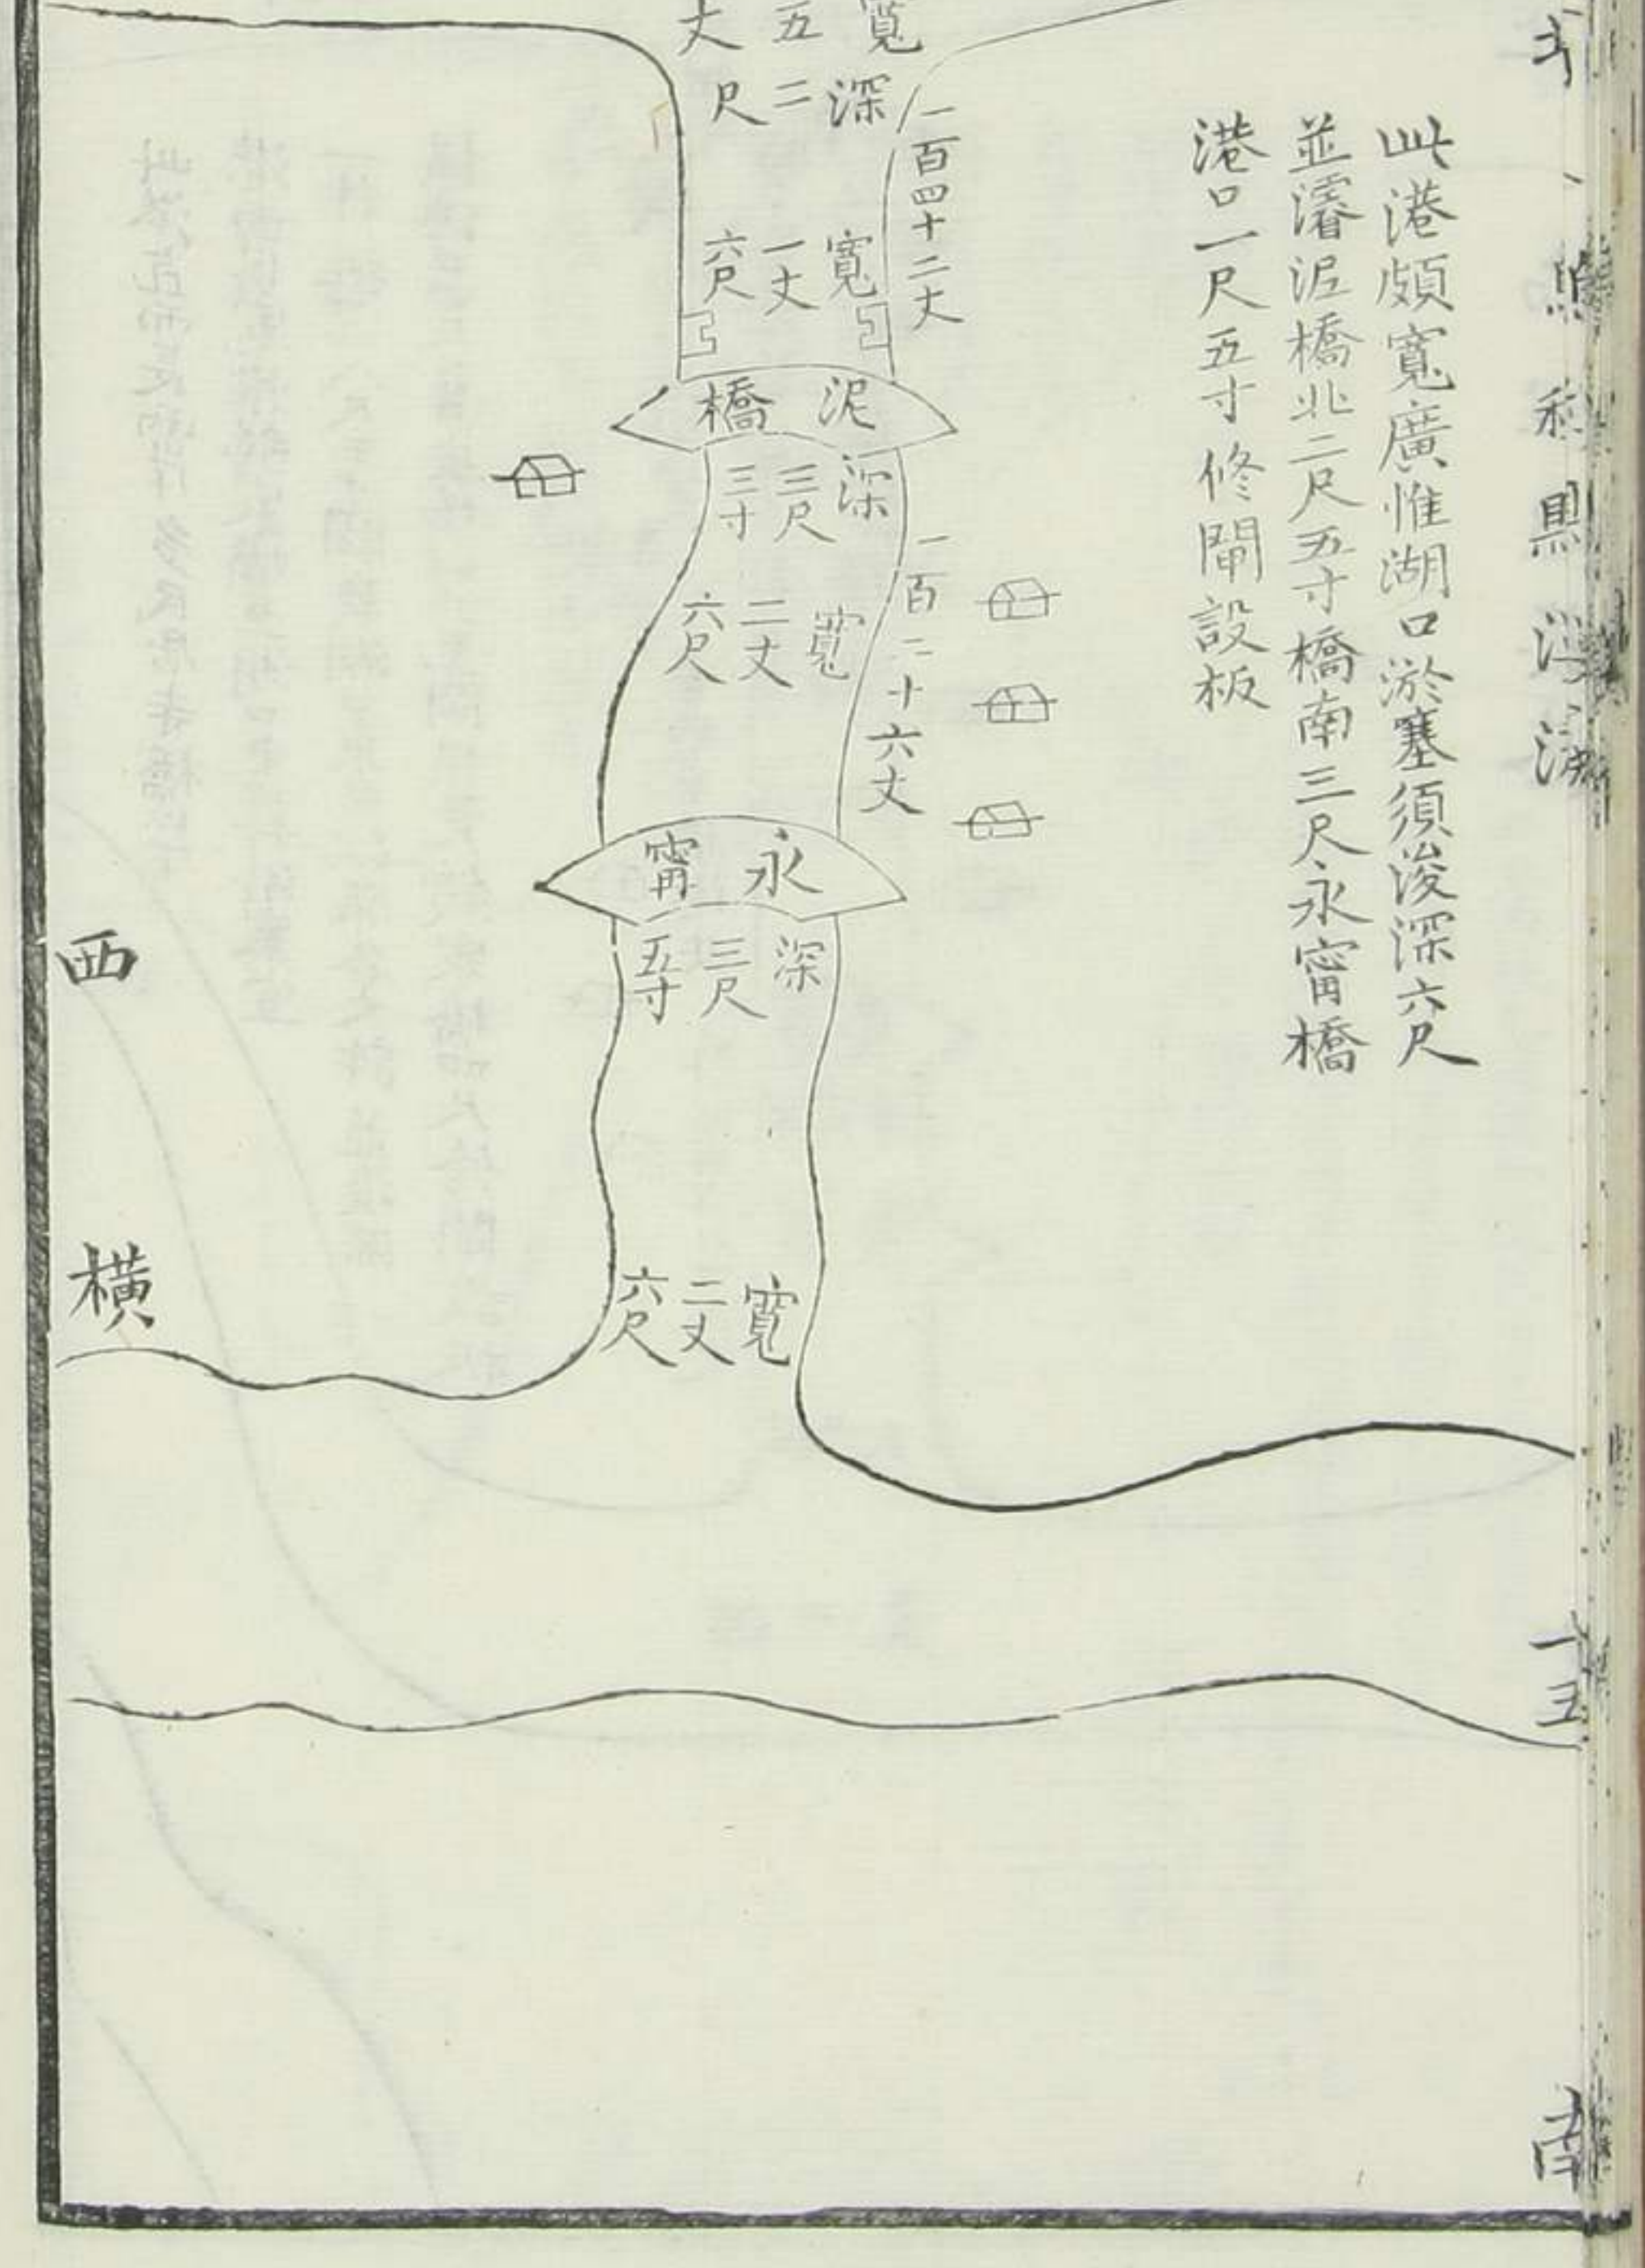 此港頗寬廣惟湖口淤塞須浚深六尺
並濬泥橋北二尺五寸橋南三尺永甯橋
港口一尺五寸修閘設板
寬五丈
深二尺
一百四十二丈
寬一丈六尺
泥橋
深三尺三寸
一百二十六丈
寬二丈六尺
永甯
深三尺五寸
寬二丈六尺
西
橫
十五
南